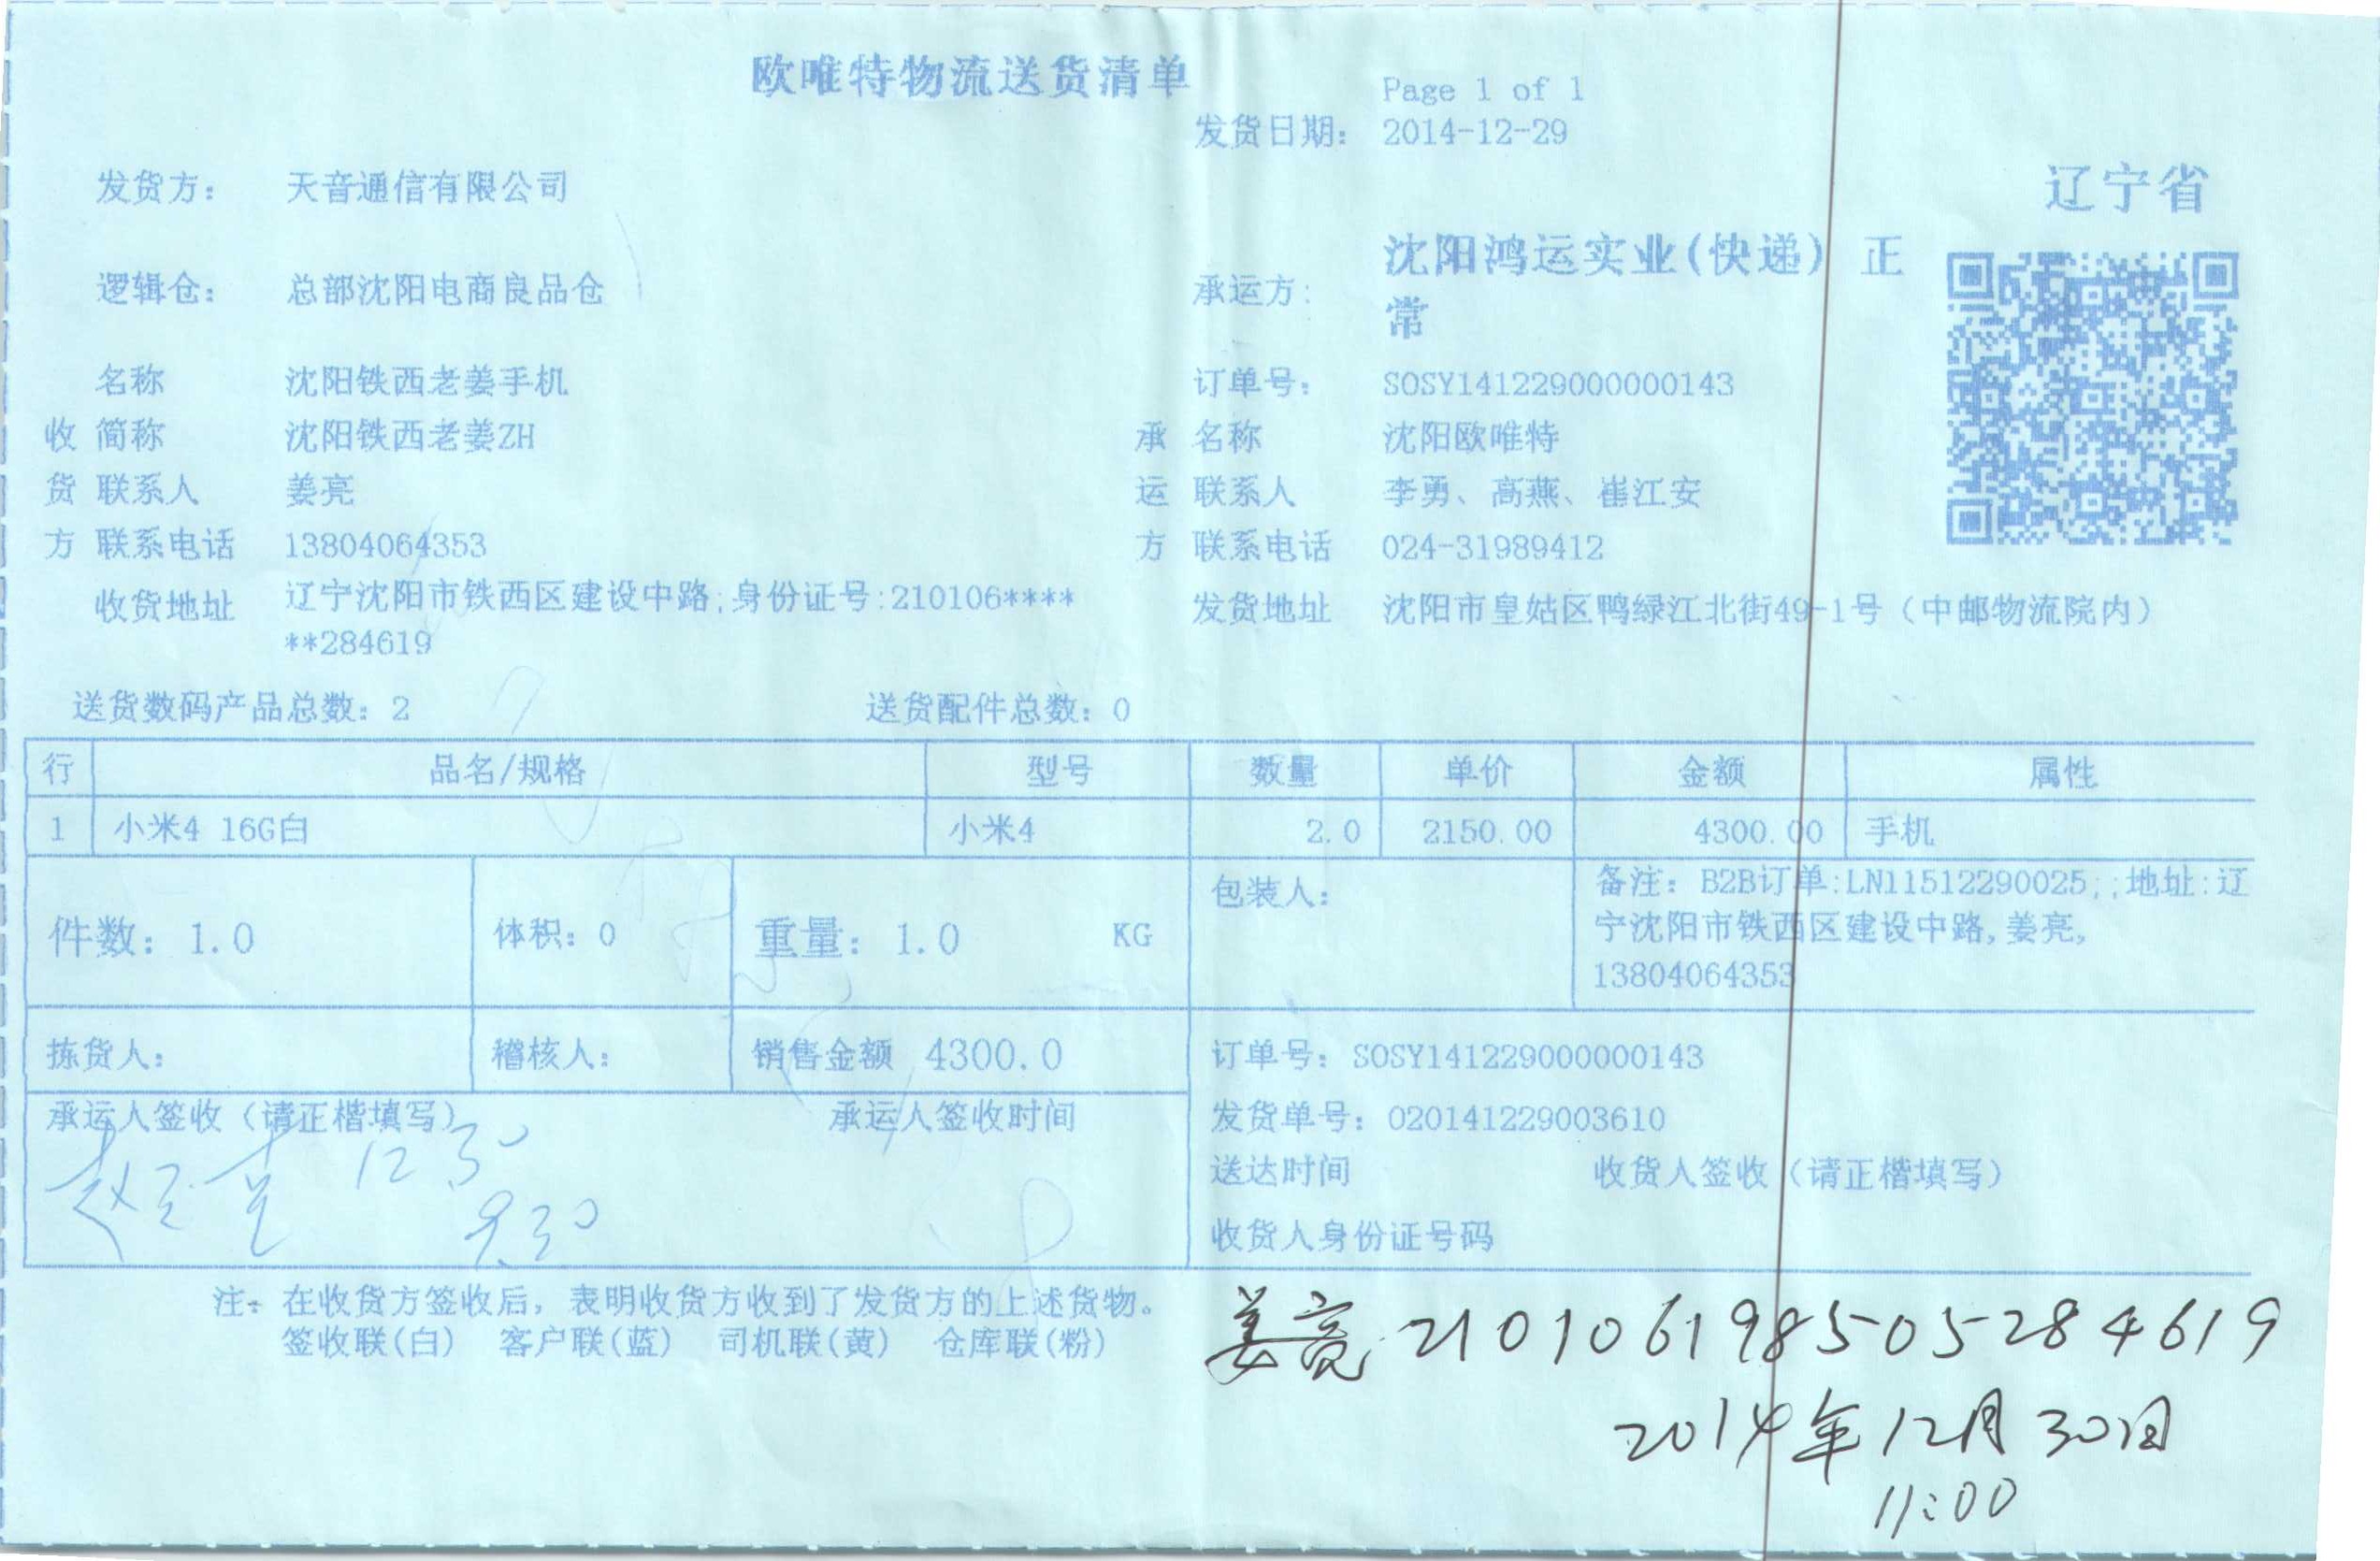 欧唯特物流送货清单
Page 1 of 1
发货日期: 2014-12-29
辽宁省
发货方: 天音通信有限公司
逻辑仓: 总部沈阳电商良品仓
承运方: 沈阳鸿运实业(快递) 正
常
名称 沈阳铁西老姜手机 订单号: SOSY141229000000143
收 简称 沈阳铁西老姜ZH 承 名称 沈阳欧唯特
货 联系人 姜亮 运 联系人 李勇、高燕、崔江安
方 联系电话 13804064353 方 联系电话 024-31989412
收货地址 辽宁沈阳市铁西区建设中路;身份证号:210106****
**284619
发货地址 沈阳市皇姑区鸭绿江北街49-1号（中邮物流院内）
送货数码产品总数: 2 送货配件总数: 0
行 品名/规格 型号 数量 单价 金额 属性
1 小米4 16G白 小米4 2.0 2150.00 4300.00 手机
件数: 1.0 体积: 0 重量: 1.0 KG 包装人:
备注: B2B订单:LN11512290025;;地址:辽
宁沈阳市铁西区建设中路,姜亮,
13804064353
拣货人: 稽核人: 销售金额 4300.0 订单号: SOSY141229000000143
承运人签收（请正楷填写） 承运人签收时间 发货单号: 020141229003610
12 30
9.30
送达时间 收货人签收（请正楷填写）
收货人身份证号码
注: 在收货方签收后, 表明收货方收到了发货方的上述货物。
签收联(白) 客户联(蓝) 司机联(黄) 仓库联(粉)
姜亮 210106198505284619
2014年12月30日
11:00